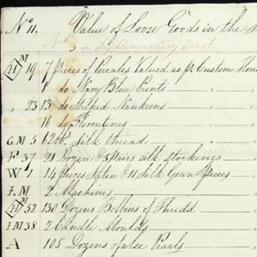 No 11. Value of Loose Goods in the
No 5 in Supplementary
HM 19 7 Pieces of Percales Valued as pr Custom Hou
1 do Navy Blue Prints
, 23 13 do Stiped Nankins
16 do Florentines
G M 5 12 lb. Silk thread
F 37 21 Dozens & 5 Pairs silk Stockings
W 1 14 pieces Satin & 11 Silk Gown pieces
I. M 2 Machines
HM 52 130 Dozens Bobins of Thredd
I M 38 2 Candle Moulds
A 108 Dozens of Pearls